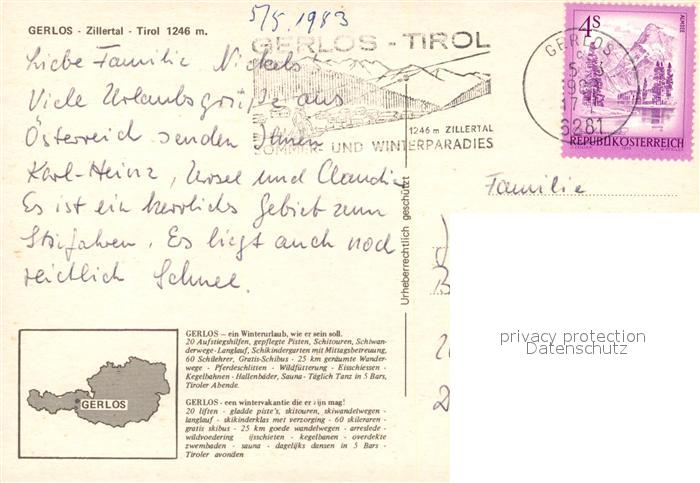 GERLOS - Zillertal - Tirol 1246 m.
5/5. 1983
Liebe Familie Nickels
Viele Urlaubsgrüße aus
Österreich senden Ihnen
Karl-Heinz, Ursel und Claudia
Es ist ein herrliches Gebiet zum
Skifahren. Es liegt auch noch
reichlich Schnee.
GERLOS - TIROL
1246 m ZILLERTAL
SOMMER- UND WINTERPARADIES
4S
ALMSEE
REPUBLIK ÖSTERREICH
GERLOS
6281
Familie
Urheberrechtlich geschützt
privacy protection
Datenschutz
GERLOS
GERLOS – ein Winterurlaub, wie er sein soll.
20 Aufstiegshilfen, gepflegte Pisten, Schitouren, Schiwan-
derwege-Langlauf, Schikindergarten mit Mittagsbetreuung,
60 Schilehrer, Gratis-Schibus - 25 km geräumte Wander-
wege - Pferdeschlitten - Wildfütterung - Eisschiessen -
Kegelbahnen - Hallenbäder, Sauna - Täglich Tanz in 5 Bars,
Tiroler Abende.
GERLOS - een wintervakantie die er zijn mag!
20 liften - gladde piste's, skitouren, skiwandelwegen -
langlauf - skikinderklas met verzorging - 60 skileraren -
gratis skibus - 25 km goede wandelwegen - arreslede -
wildvoedering - ijsschieten - kegelbanen - overdekte
zwembaden - sauna - dagelijks dansen in 5 Bars -
Tiroler avonden